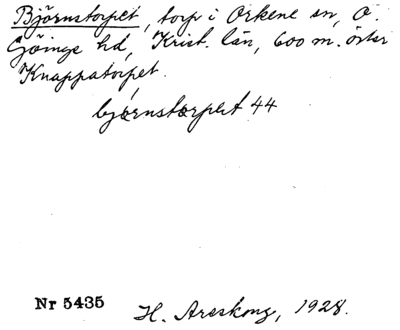 Björnstorpet, torp i Örkene sn, Ö.
Göinge hd, Krist. län, 600 m. öster
Knappatorpet.
bjørnstorpet 44
Nr 5435 H. Areskog, 1928.